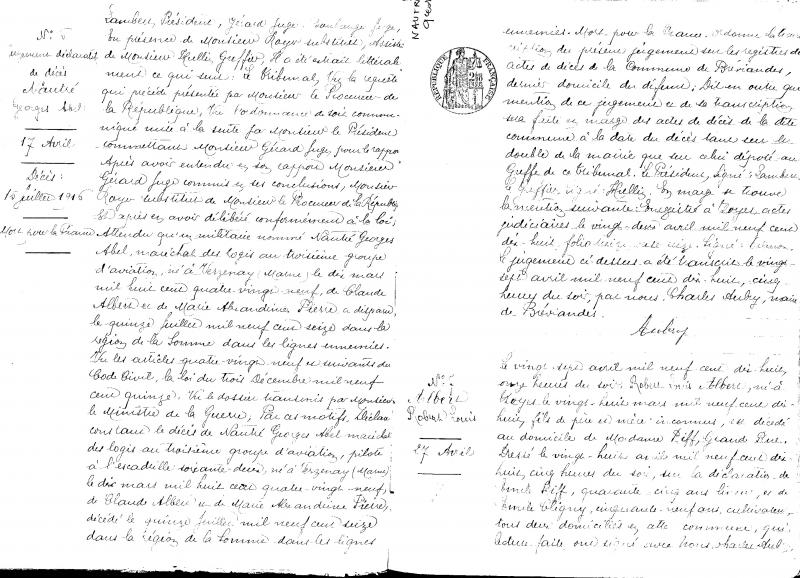 Lambert, Président, Gérard Juge, Boulanger Juge,
En présence de Monsieur Royer substitut, Assisté
de Monsieur Hulliz Greffier, Il a été extrait littérale-
ment ce qui suit: Le Tribunal, Vu la requête
qui précède présentée par Monsieur le Procureur de
la République, Vu l'ordonnance de soit commu-
niqué mise à la suite par Monsieur le Président
commettant Monsieur Gérard Juge, pour le rapport
Après avoir entendu en son rapport Monsieur
Gérard Juge commis en ses conclusions, Monsieur
Royer substitut de Monsieur le Procureur de la République
Et après en avoir délibéré conformément à la loi;
Attendu qu'un militaire nommé Nautré Georges
Abel, maréchal des logis au troisième groupe
d'aviation, né à Verzenay (Marne) le dix mars
mil huit cent quatre-vingt-neuf, de Claude
Albert et de Marie Alexandrine Pierre a disparu
le quinze Juillet mil neuf cent seize dans la
région de la Somme dans les lignes ennemies.
Vu les articles quatre-vingt neuf et suivants du
Code Civil, la loi du trois Décembre mil neuf
cent quinze, Vu le dossier transmis par Monsieur
le Ministre de la Guerre, Par ces motifs, Déclare
constant le décès de Nautré Georges Abel maréchal
des logis au troisième groupe d'aviation, pilote
à l'escadrille soixante-deux, né à Verzenay (Marne)
le dix mars mil huit cent quatre-vingt-neuf,
de Claude Albert et de Marie Alexandrine Pierre,
décédé le quinze Juillet mil neuf cent seize
dans la région de la Somme dans les lignes
N° 5
Jugement déclaratif
de décès
Nautré
Georges Abel
17 Avril
Décès:
15 juillet 1916
Mort pour la France
NAUTR
RÉPUBLIQUE FRANÇAISE
ennemies. Mort pour la France. Ordonne la trans-
cription du présent jugement sur les registres des
actes de décès de la Commune de Bréviandes,
dernier domicile du défunt; Dit en outre que
mention de ce jugement et de sa transcription
sera faite en marge des actes de décès de la dite
commune à la date du décès tant sur le
double de la mairie que sur celui déposé au
Greffe de ce Tribunal. Le Président, signé: Lambert
Le Greffier signé: Hulliz. En marge se trouve
la mention suivante: Enregistré à Troyes actes
judiciaires le vingt-deux avril mil neuf cent
dix-huit, folio seize case signé:
Le jugement ci dessus a été transcrit le vingt-
sept avril mil neuf cent dix-huit, cinq
heures du soir, par nous, Charles Aubry, maire
de Bréviandes.
Aubry
N° 7
Albert
Robert Louis
27 Avril
Le vingt-sept avril mil neuf cent dix-huit,
onze heures du soir, Robert Louis Albert, né à
Troyes le vingt-huit mars mil neuf cent dix-
huit, fils de père et mère inconnus, est décédé
au domicile de Madame Piff, Grande Rue.
Dressé le vingt-huit avril mil neuf cent dix-
huit, cinq heures du soir, sur la déclaration de
Emile Piff, quarante cinq ans, et de
Emile Cligny, cinquante-neuf ans, cultivateur,
tous deux domiciliés en cette commune, qui,
lecture faite ont signé avec Nous, Charles Aub